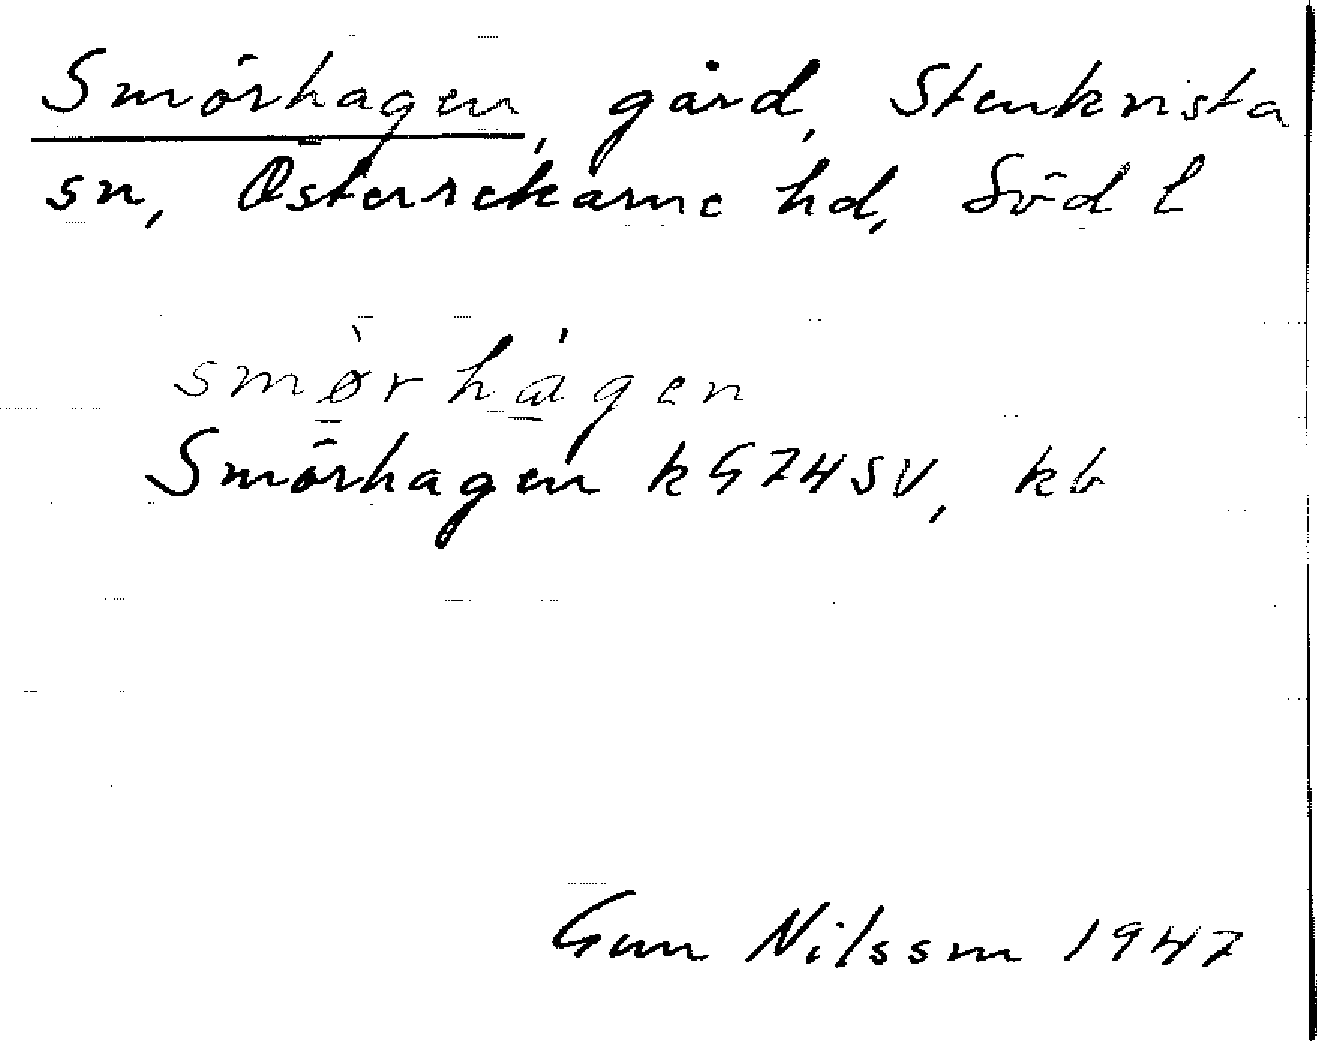 Smörhagen, gård, Stenkvista
sn, Österrekarne hd, Söd l
smø̀rhá̱gen
Smörhagen k G74SV, kb
Gun Nilsson 1947